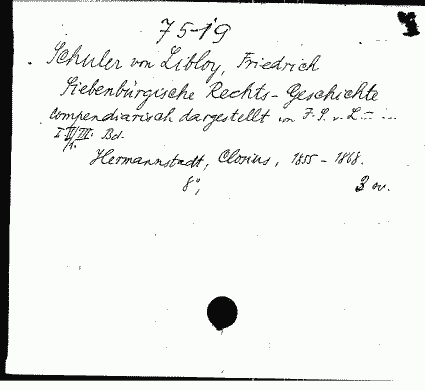 75-19
Schuler von Libloy, Friedrich
Siebenbürgische Rechts-Geschichte
compendiarisch dargestellt von F. S. v. L.
I. II/1. III. Bd.
Hermannstadt, Closius, 1855-1868.
8°, 3